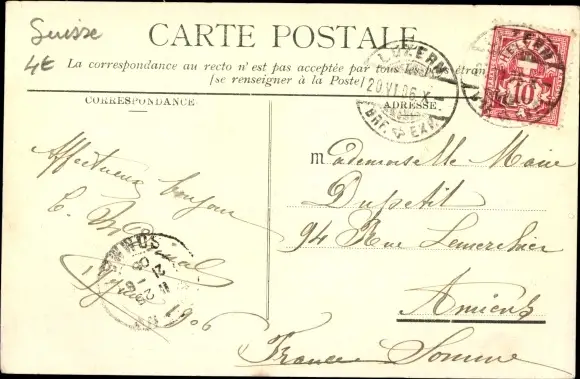 Suisse
4€
CARTE POSTALE
La correspondance au recto n'est pas acceptée par tous les pays étran
(se renseigner à la Poste)
CORRESPONDANCE
ADRESSE.
LUZERN
20.VI.06.X
BRF. EXP.
10
Affectueux bonjour
Mademoiselle Marie
Dupetit
94 Rue Lemerchier
Amiens
France Somme
1906